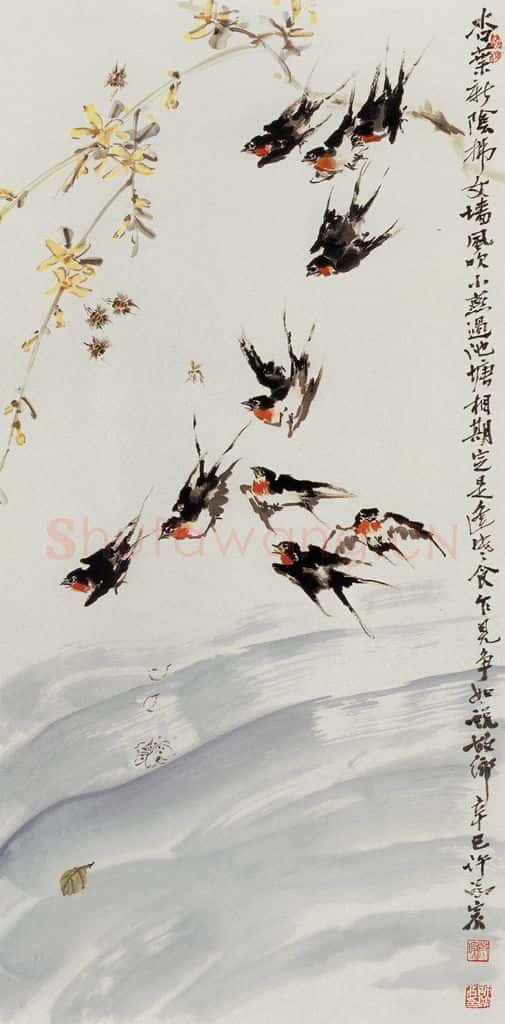 杏葉新陰拂女墻風吹小燕過池塘相期定是逢食乍見爭如說故鄉辛巳許
Shufawang.CN